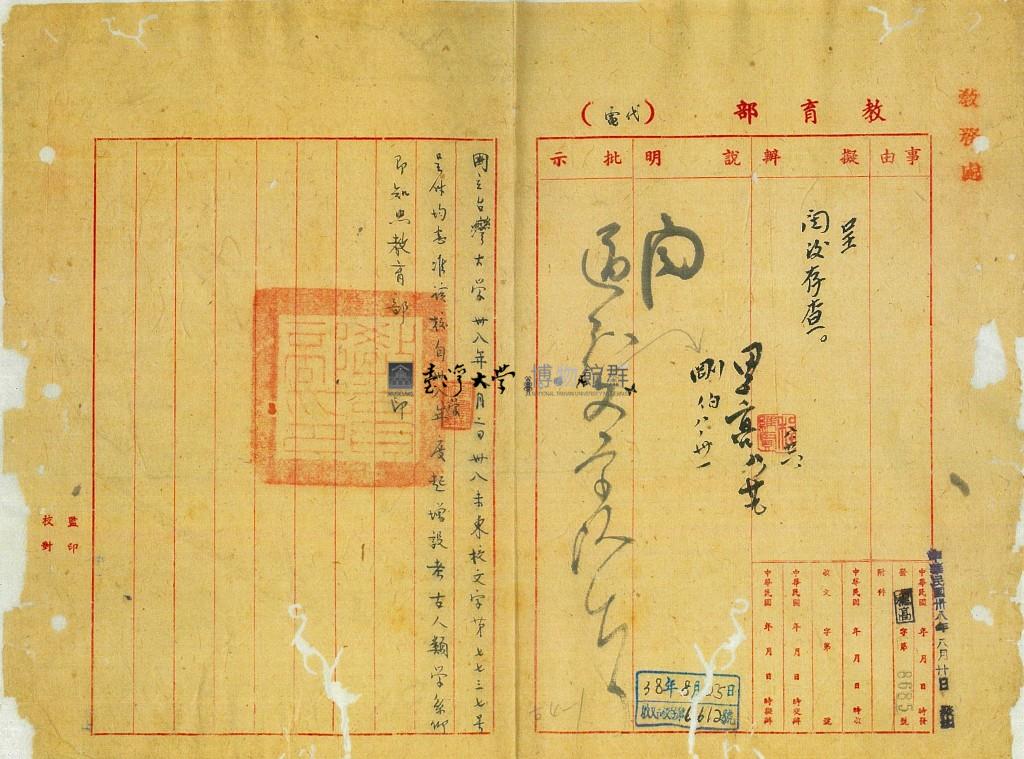 教務處
教育部（代電）
事由
擬辦
說明
批示
呈
閱後存查。
剛伯 八、卅一
中華民國卅八年八月廿日 發出
中華民國 年 月 日 時發
發 字第 8685 號
附件
中華民國 年 月 日 時收
收文 字第 號
中華民國 年 月 日 時交辦
中華民國 年 月 日 時擬辦
38年8月25日
6612號
國立台灣大学卅八年六月二日卅八未東校文字第七七三七号
呈件均悉准該校自卅八年度起增設考古人類学系仰
即知照教育部 印
臺灣大學 博物館群
NATIONAL TAIWAN UNIVERSITY MUSEUMS
監印
校對